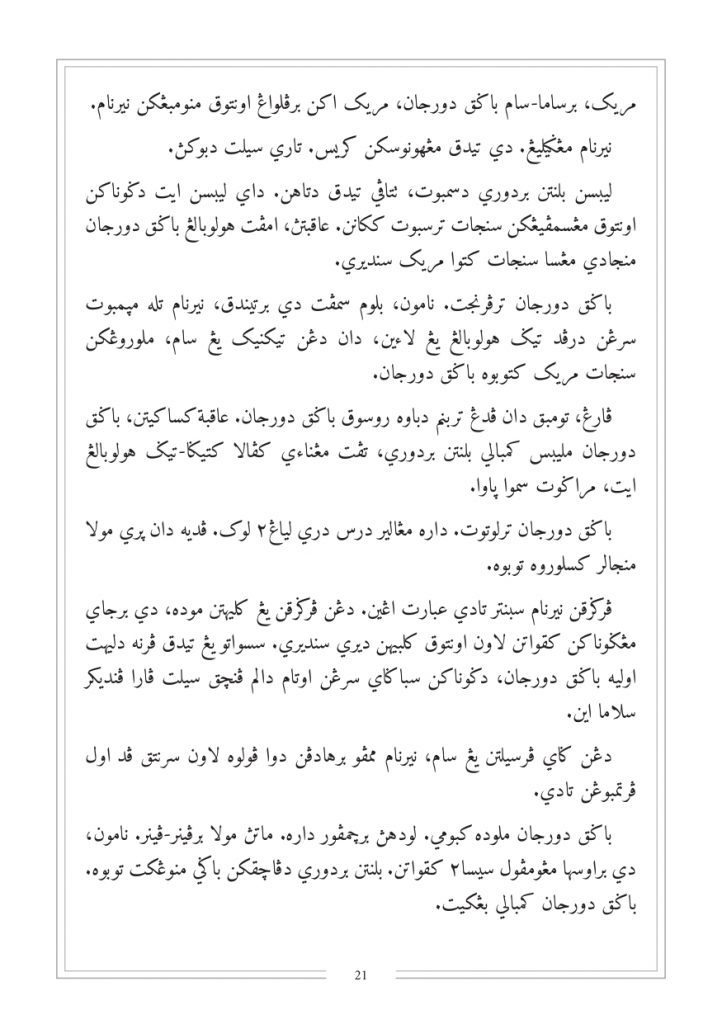 مريک، برساما-سام باݢق دورجان، مريک اکن برڤلواڠ اونتوق منومبڠکن نيرنام.
نيرنام مڠݢيليڠ. دي تيدق مڠهونوسکن کريس. تاري سيلت دبوکڽ.
ليبسن بلنتن بردوري دسمبوت، تتاڤي تيدق دتاهن. داي ليبسن ايت دݢوناکن
اونتوق مڠسمڤيڠکن سنجات ترسبوت ککانن. عاقبتڽ، امڤت هولوبالڠ باݢق دورجان
منجادي مڠسا سنجات کتوا مريک سنديري.
باݢق دورجان ترڤرنجت. نامون، بلوم سمڤت دي برتيندق، نيرنام تله مڽمبوت
سرڠن درڤد تيݢ هولوبالڠ يڠ لاءين، دان دڠن تيکنيک يڠ سام، ملوروڠکن
سنجات مريک کتوبوه باݢق دورجان.
ڤارڠ، تومبق دان ڤدڠ تربنم دباوه روسوق باݢق دورجان. عاقبة کساکيتن، باݢق
دورجان مليبس کمبالي بلنتن بردوري، تڤت مڠناءي کڤالا کتيݢا-تيݢ هولوبالڠ
ايت، مراݢوت سموا ڽاوا.
باݢق دورجان ترلوتوت. داره مڠالير درس دري لياڠ٢ لوک. ڤديه دان ڽري مولا
منجالر کسلوروه توبوه.
ڤرݢرقن نيرنام سبنتر تادي عبارت اڠين. دڠن ڤرݢرقن يڠ کليهتن موده، دي برجاي
مڠݢوناکن کقواتن لاون اونتوق کلبيهن ديري سنديري. سسواتو يڠ تيدق ڤرنه دليهت
اوليه باݢق دورجان، دݢوناکن سباݢاي سرڠن اوتام دالم ڤنچق سيلت ڤارا ڤنديکر
سلاما اين.
دڠن ݢاي ڤرسيلتن يڠ سام، نيرنام ممڤو برهادڤن دوا ڤولوه لاون سرنتق ڤد اول
ڤرتمبوڠن تادي.
باݢق دورجان ملوده کبومي. لودهڽ برچمڤور داره. ماتڽ مولا برڤينر-ڤينر. نامون،
دي براوسها مڠومڤول سيسا٢ کقواتن. بلنتن بردوري دڤاچقکن باݢي منوڠکت توبوه.
باݢق دورجان کمبالي بڠکيت.
21